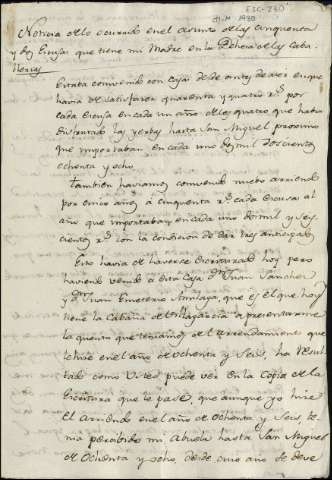 ESC-230
Noticia de lo ocurrido en el asunto de las cinquenta
y dos Escusas que tiene mi Madre en la de las Caba
llerias
Estaba convenido con esa desde antes de aver en que
havia de satisfacer quarenta y quatro rs. por
cada Escusa en cada un año de los quatro que havia
disfrutado las yerbas hasta San Miguel proximo
que importaban en cada uno dos mil doscientos
ochenta y ocho.
Tambien haviamos convenido nuebo arriendo
por cinco años à cinquenta rs. cada escusa al
año que importaba en cada uno dos mil y seis
cientos rs. con la condicion de dar tres anticipados
Esto havia de haverse Escriturado hoy pero
haviendo venido à esta Casa Dn. Juan Sanchez
y Dn. Juan Emeterio que es el que hoy
tiene la Cabaña de à presentarme
la quenta que teniamos de el arrendamiento que
le hice en el año de ochenta y seis, ha resul
tado como Vsted puede ver en la Copia de la
Escritura que le pasé, que aunque yo hice
el Arriendo en el año de ochenta y seis, te
nia percibido mi Abuela hasta San Miguel
de ochenta y ocho, desde cuio año se deve